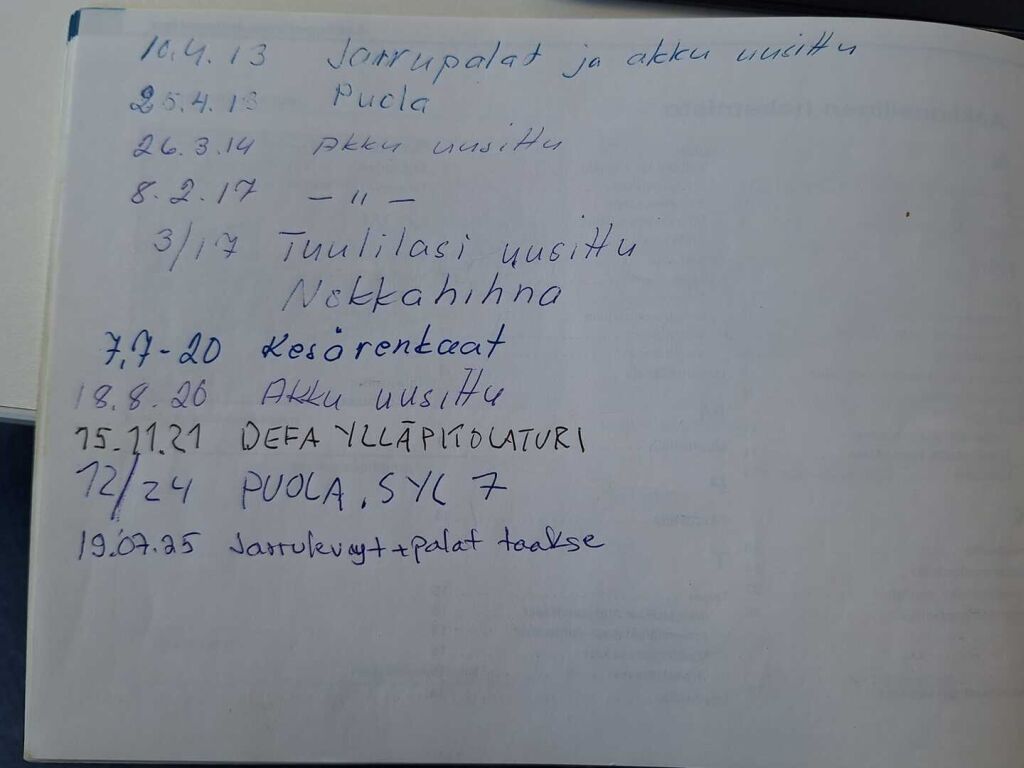 10.4.13 Jarrupalat ja akku uusittu
25.4.13 Puola
26.3.14 Akku uusittu
8.2.17 — " —
3/17 Tuulilasi uusittu
Nokkahihna
7.7-20 Kesärenkaat
18.8.20 Akku uusittu
15.11.21 DEFA YLLÄPITOLATURI
12/24 PUOLA, SYL 7
19.07.25 Jarrulevyt+palat taakse